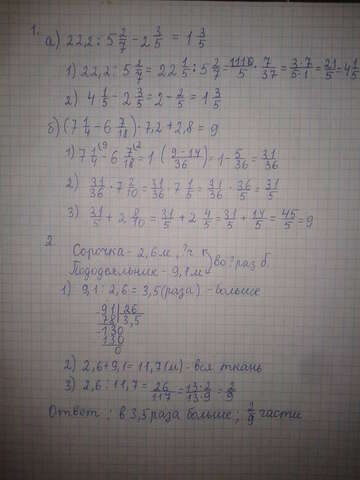 1.
а) 22,2 : 5 2/7 - 2 3/5 = 1 3/5
1) 22,2 : 5 2/7 = 22 1/5 : 5 2/7 = 111/5 · 7/37 = 3·7/5·1 = 21/5 = 4 1/5
2) 4 1/5 - 2 3/5 = 2 - 2/5 = 1 3/5
б) (7 1/4 - 6 7/18) · 7,2 + 2,8 = 9
1) 7 1/4 - 6 7/18 = 1 (9-14/36) = 1 - 5/36 = 31/36
2) 31/36 · 7 2/10 = 31/36 · 7 1/5 = 31/36 · 36/5 = 31/5
3) 31/5 + 2 8/10 = 31/5 + 2 4/5 = 31/5 + 14/5 = 45/5 = 9
2.
Сорочка - 2,6 м, ?ч
Пододеяльник - 9,1 м
во ? раз б.
1) 9,1 : 2,6 = 3,5 (раза) - больше
91 | 26
78 | 3,5
130
130
0
2) 2,6 + 9,1 = 11,7 (м) - вся ткань
3) 2,6 : 11,7 = 26/117 = 13·2/13·9 = 2/9
Ответ: в 3,5 раза больше; 2/9 части